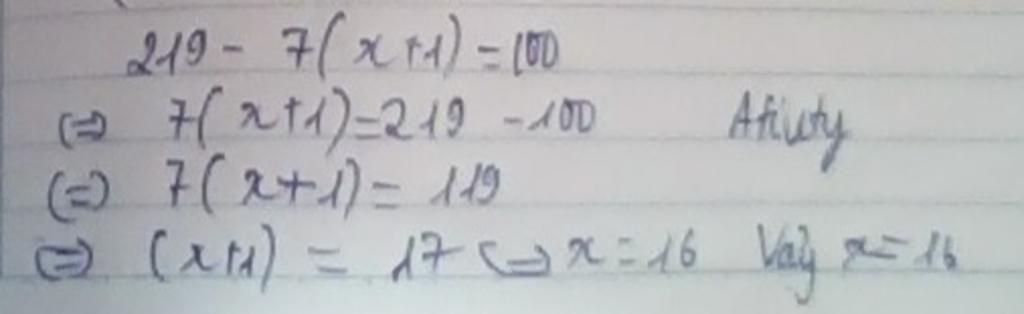 219 - 7(x+1) = 100
⇔ 7(x+1)=219 - 100
⇔ 7(x+1) = 119
⇔ (x+1) = 17 ⇔ x = 16 Vậy x = 16